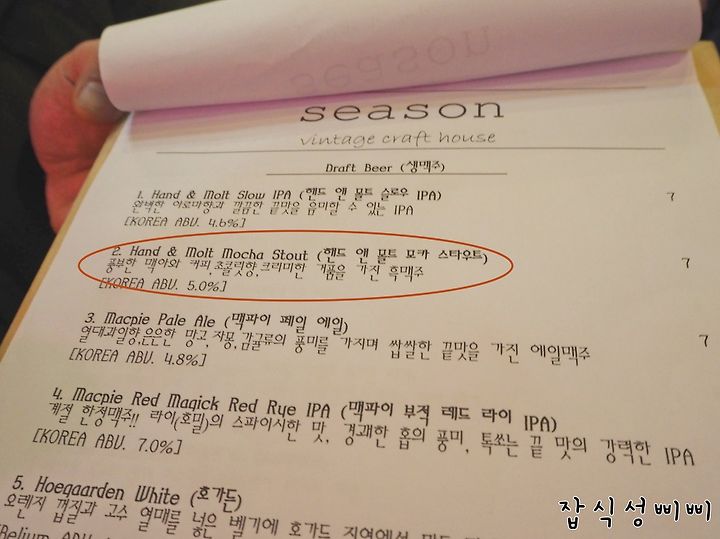 season
vintage craft house
Draft Beer (생맥주)
1. Hand & Molt Slow IPA (핸드 앤 몰트 슬로우 IPA)
완벽한 아로마향과 깔끔한 끝맛을 음미할 수 있는 IPA
7
[KOREA ABV. 4.6%]
2. Hand & Molt Mocha Stout (핸드 앤 몰트 모카 스타우트)
풍부한 맥아와 커피,초콜릿향,크리미한 거품을 가진 흑맥주
7
[KOREA ABV. 5.0%]
3. Macpie Pale Ale (맥파이 페일 에일)
열대과일향,은은한 망고,자몽,감귤류의 풍미를 가지며 쌉쌀한 끝맛을 가진 에일맥주
7
[KOREA ABV. 4.8%]
4. Macpie Red Magick Red Rye IPA (맥파이 부적 레드 라이 IPA)
계절 한정맥주!! 라이(호밀)의 스파이시한 맛, 경쾌한 홉의 풍미, 톡쏘는 끝 맛의 강력한 IPA
[KOREA ABV. 7.0%]
5. Hoegaarden White (호가든)
오렌지 껍질과 고수 열매를 넣은 벨기에 호가든 지역에서
잡식성삐삐